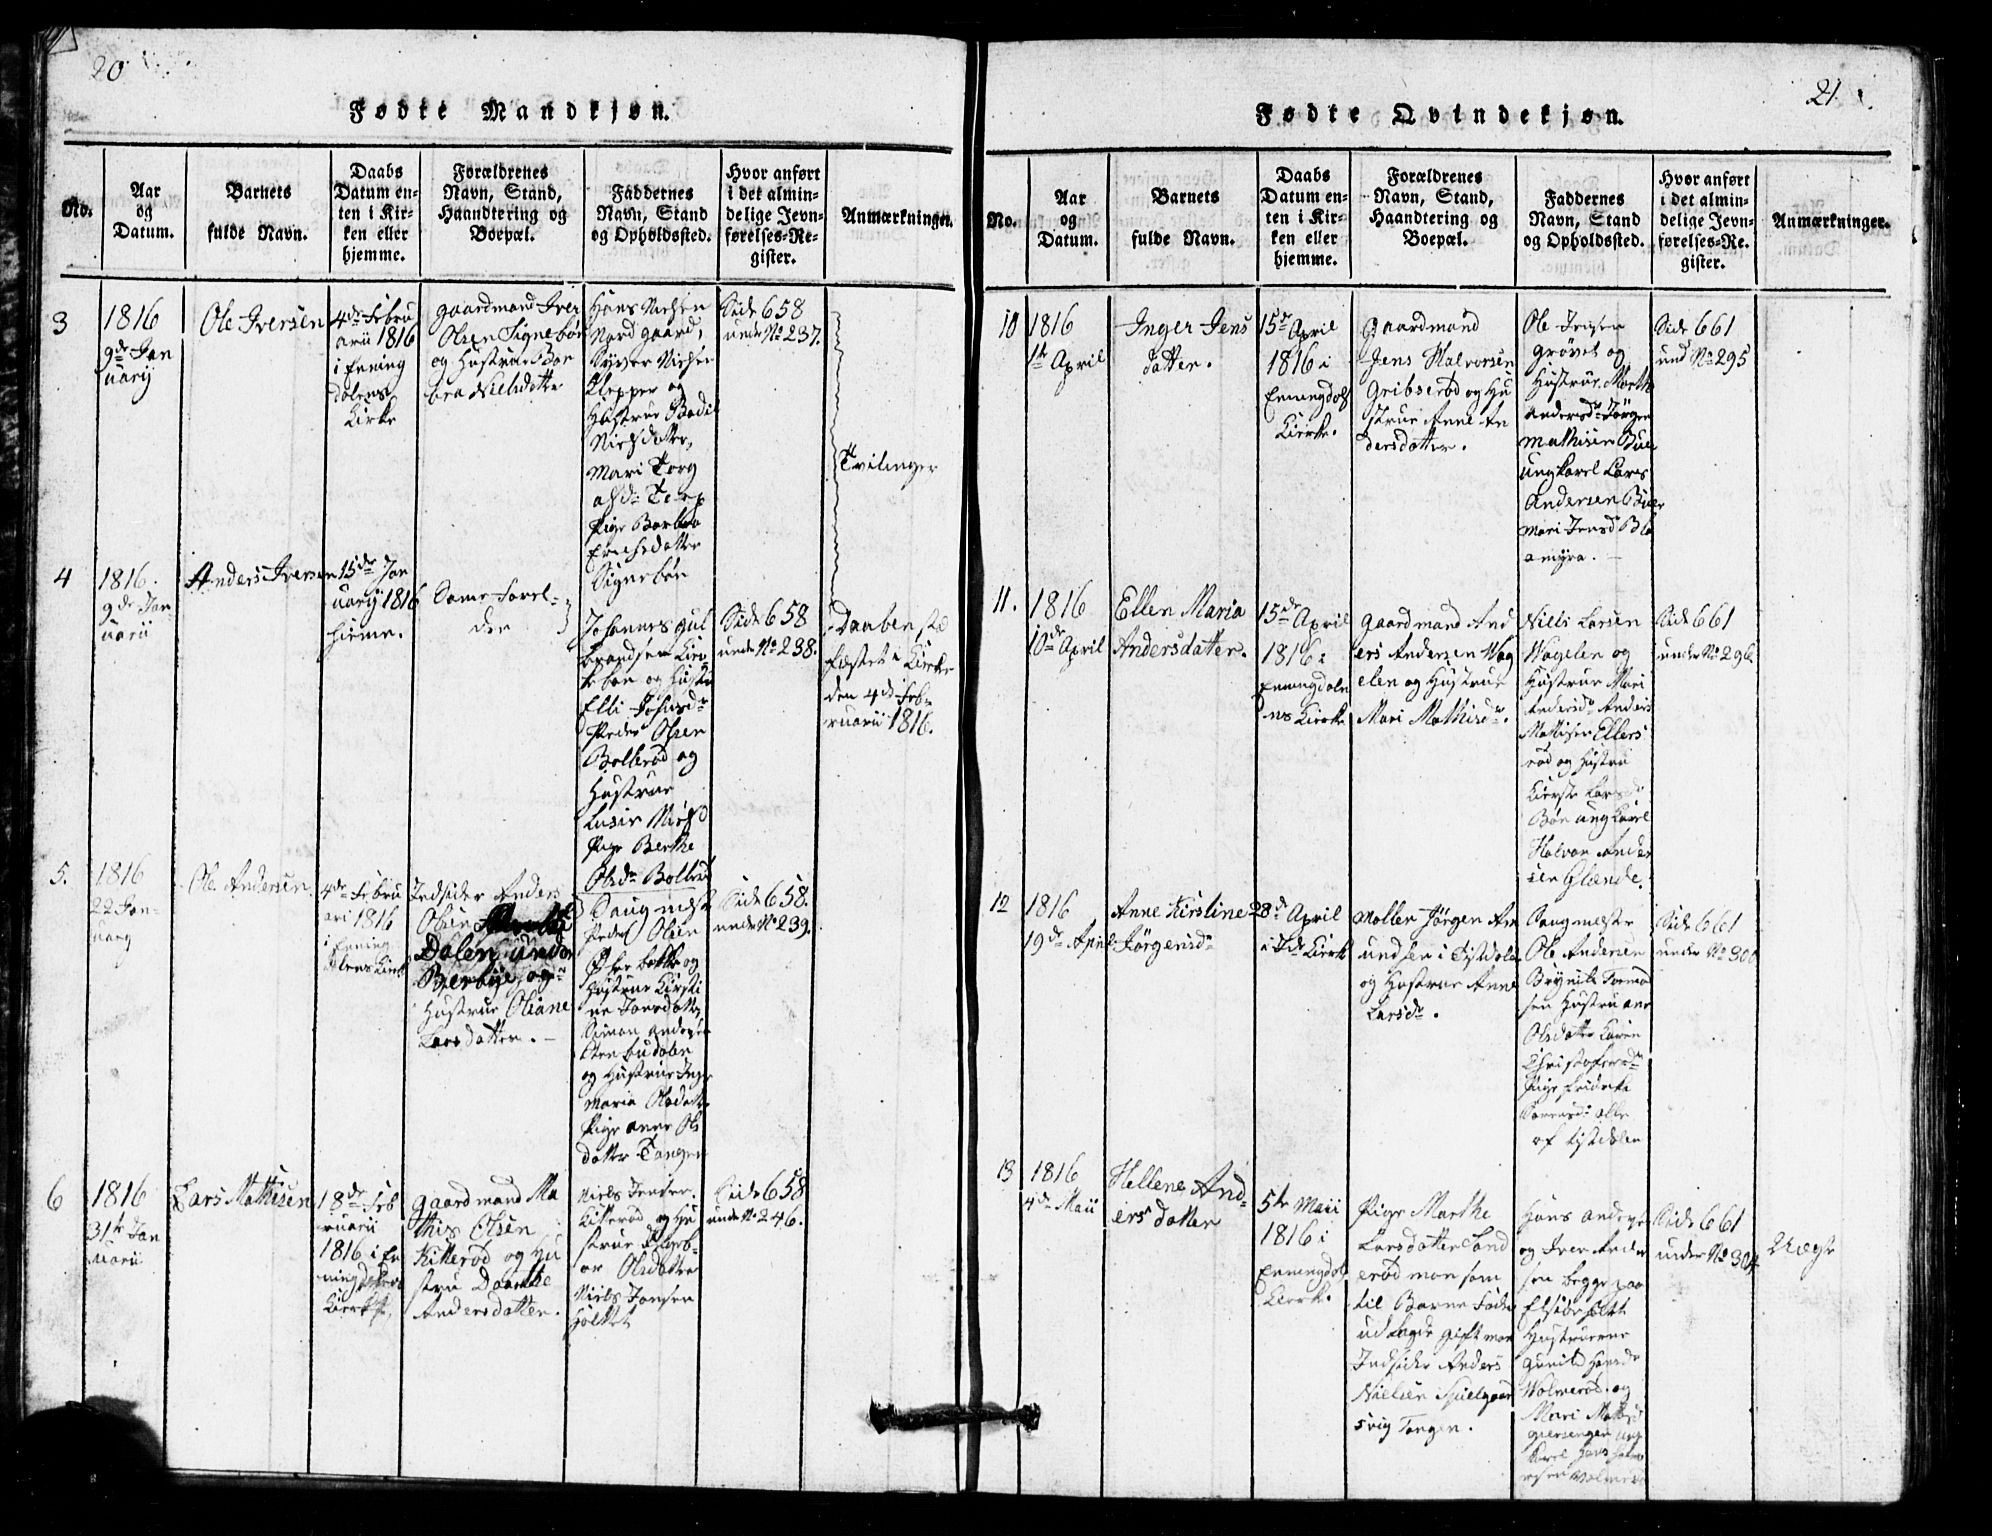 20
Fødte Mandkjøn.
No.
Aar
og
Datum.
Barnets
fulde Navn.
Daabs
Datum en-
ten i Kir-
ken eller
hjemme.
Forældrenes
Navn, Stand,
Haandtering og
Boepæl.
Faddernes
Navn, Stand
og Opholdssted.
Hvor anført
i det almin-
delige Jevn-
førelses-Re-
gister.
Anmærkninger.
3
1816
9de Jan
uarij
Ole Iversen
4de Febru
arii 1816
i Ening
dalens
Kirke
gaardmand Iver
Olsen Signebøn
og Hustrue Bar
bra Nielsdatter
Hans Nielsen
Nordgaard,
Syver Nielsen
Klepper og
Hustrue Bodil
Nielsdatter,
Mari Torg
alsdr Torp
Pige Barbra
Erichsdatter
Signebøn
Side 658
under No 237.
Tvilinger
4
1816.
9de Jan
uarii
Anders Iversen
15de Jan
uarij 1816
hieme.
Same Forel-
der
Johannes Gul
brandsen
og Hustru
Elli Johnsdr
Peder Olsen
Bollerød og
Hustrue
Lusie Nielsd
Pige Berthe
Olsdr Bollerød
Side 658
under No 238.
Daaben sta
fæstet i Kirke
den 4de Feb-
ruarii 1816.
5.
1816
22 Jan-
uarij
Ole Andersen
4de Febru
ari 1816
i Ening
dalens Kirke
Indsider Anders
Olsen
Dalen under
Berbye og
Hustrue Oliane
Larsdatter.
Saugmest
Peder Olsen
og
Hustrue Kirsti
ne Jansdatter,
Simon Anders
og Hustrue Inge
Maria Olsdatt.
Pige Anne Ols
datter Tangen
Side 658.
under No 239.
6
1816
31te Jan
uarii
Lars Mathisen
18de Feb
ruarii
1816 i En
ningdalens
Kierke
gaardmand Ma
this Olsen
Kitterød og Hu
stru Dorthe
Andersdatter.
Niels Jensen
Kitterød og Hu
strue Ingeb-
or Olsdatter
Niels Jansen
Holtet
Side 658
under No 246.
21.
Fødte Qvindekjøn.
No.
Aar
og
Datum.
Barnets
fulde Navn.
Daabs
Datum en-
ten i Kir-
ken eller
hjemme.
Forældrenes
Navn, Stand,
Haandtering og
Boepæl.
Faddernes
Navn, Stand
og Opholdssted.
Hvor anført
i det almin-
delige Jevn-
førelses-Re.
gister.
Anmærkninger.
10
1816
1te April
Inger Jens
datter.
15de April
1816 i
Enningdals
Kierke.
Gaardmand
Jens Halvorsen
Gribserød og Hu
strue Anne An
dersdatter.
Ole Jensen
Grøvet og
Hustrue Marthe
Andersdr Jørgen
Mathisen Buer
ungkarl Lars
Andersen Buer
Mari Jensdr Bla
amyra.
Side 661
und No 295
11.
1816
10de April
Ellen Maria
Andersdatter.
15de April
1816 i
Enningdale
ns Kierke
Gaardmand And
ers Andersen Vag
elen og Hustrue
Mari Mathisdr.
Niels Larsen
Vagelen og
Hustrue Mari
Andersdr Anders
Mathisen Ellers
rød og Hustru
Kirste Larsdr
Bøn ungkarl
Halvor Ander
sen Glænde.
Side 661
under No 296.
12
1816
19de April
Anne Kirstine
Jørgensdr
28de April
i Ide Kierke
Møller Jørgen Am
undsen i Tistdalen
og Hustrue Anne
Larsdr.
Saugmester
Ole Andersen
Hustru Ane
Olsdatter Karen
Christofersdr
Pige Fridrike
alle
af Tistdalen
Side 661
under No 300
13
1816
4de Maii
Hellene And-
ersdatter
5te Maii
1816 i
Enningdals
Kierke.
Pige Marthe
Larsdatter Sand
erød man som
til Barne Fader
udlagde gift man
Indsider Anders
Nielsen
svig Tangen.
Hans Anders
og Iver Ander
sen begge paa
Hustruerne
Gunild Hansdr
Holmerød og
Mari
Side 661
under No 304
Uægte